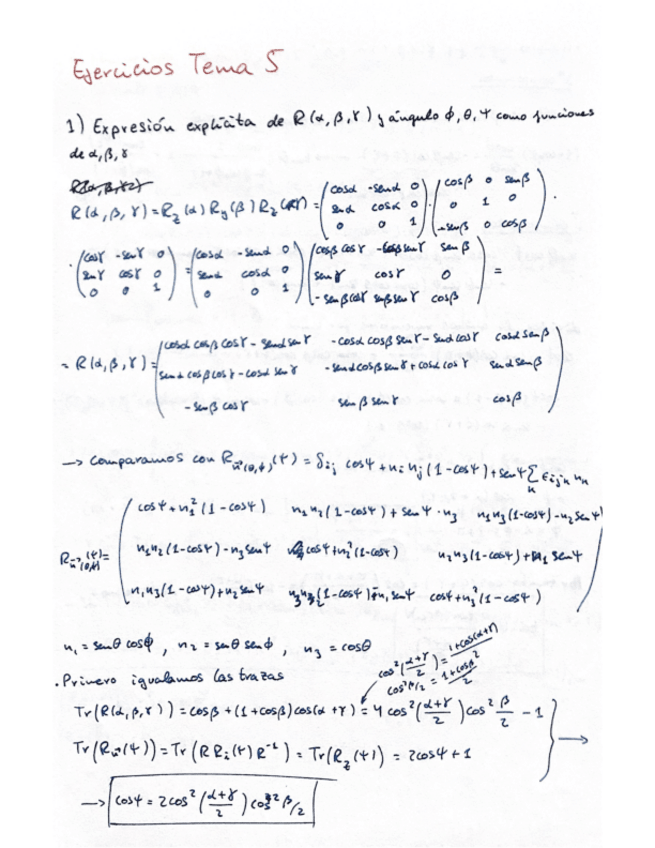 Ejercicios Tema 5
1) Expresión explícita de R(α, β, γ) y ángulo ϕ, θ, Ψ como funciones
de α, β, γ
R(α, β, γ) = R_z(α) R_y(β) R_z(γ) = (cosα -senα 0; senα cosα 0; 0 0 1) · (cosβ 0 senβ; 0 1 0; -senβ 0 cosβ) ·
· (cosγ -senγ 0; senγ cosγ 0; 0 0 1) = (cosα -senα 0; senα cosα 0; 0 0 1) (cosβ cosγ -cosβ senγ senβ; senγ cosγ 0; -senβ cosγ senβ senγ cosβ) =
= R(α, β, γ) = (cosα cosβ cosγ - senα senγ -cosα cosβ senγ - senα cosγ cosα senβ; senα cosβ cosγ - cosα senγ -senα cosβ senγ + cosα cosγ senα senβ; -senβ cosγ senβ senγ cosβ)
→ Comparamos con R_n(θ,ϕ)(Ψ) = δ_ij cosΨ + n_i n_j (1-cosΨ) + senΨ Σ_k ε_ijk n_k
R_n(θ,ϕ)(Ψ) = (cosΨ + n₁²(1-cosΨ) n₁n₂(1-cosΨ) + senΨ · n₃ n₁n₃(1-cosΨ) - n₂ senΨ;
n₁n₂(1-cosΨ) - n₃ senΨ cosΨ + n₂²(1-cosΨ) n₂n₃(1-cosΨ) + n₁ senΨ;
n₁n₃(1-cosΨ) + n₂ senΨ n₂n₃(1-cosΨ) n₁ senΨ cosΨ + n₃²(1-cosΨ))
n₁ = senθ cosϕ, n₂ = senθ senϕ, n₃ = cosθ
cos²((α+γ)/2) = (1+cos(α+γ))/2
cos²β/2 = (1+cosβ)/2
. Primero igualamos las trazas
Tr(R(α, β, γ)) = cosβ + (1+cosβ) cos(α+γ) = 4 cos²((α+γ)/2) cos² β/2 - 1
Tr(R_n(Ψ)) = Tr(R R_i(Ψ) R⁻¹) = Tr(R_z(Ψ)) = 2cosΨ + 1 →
→ cosΨ = 2cos²((α+γ)/2) cos² β/2